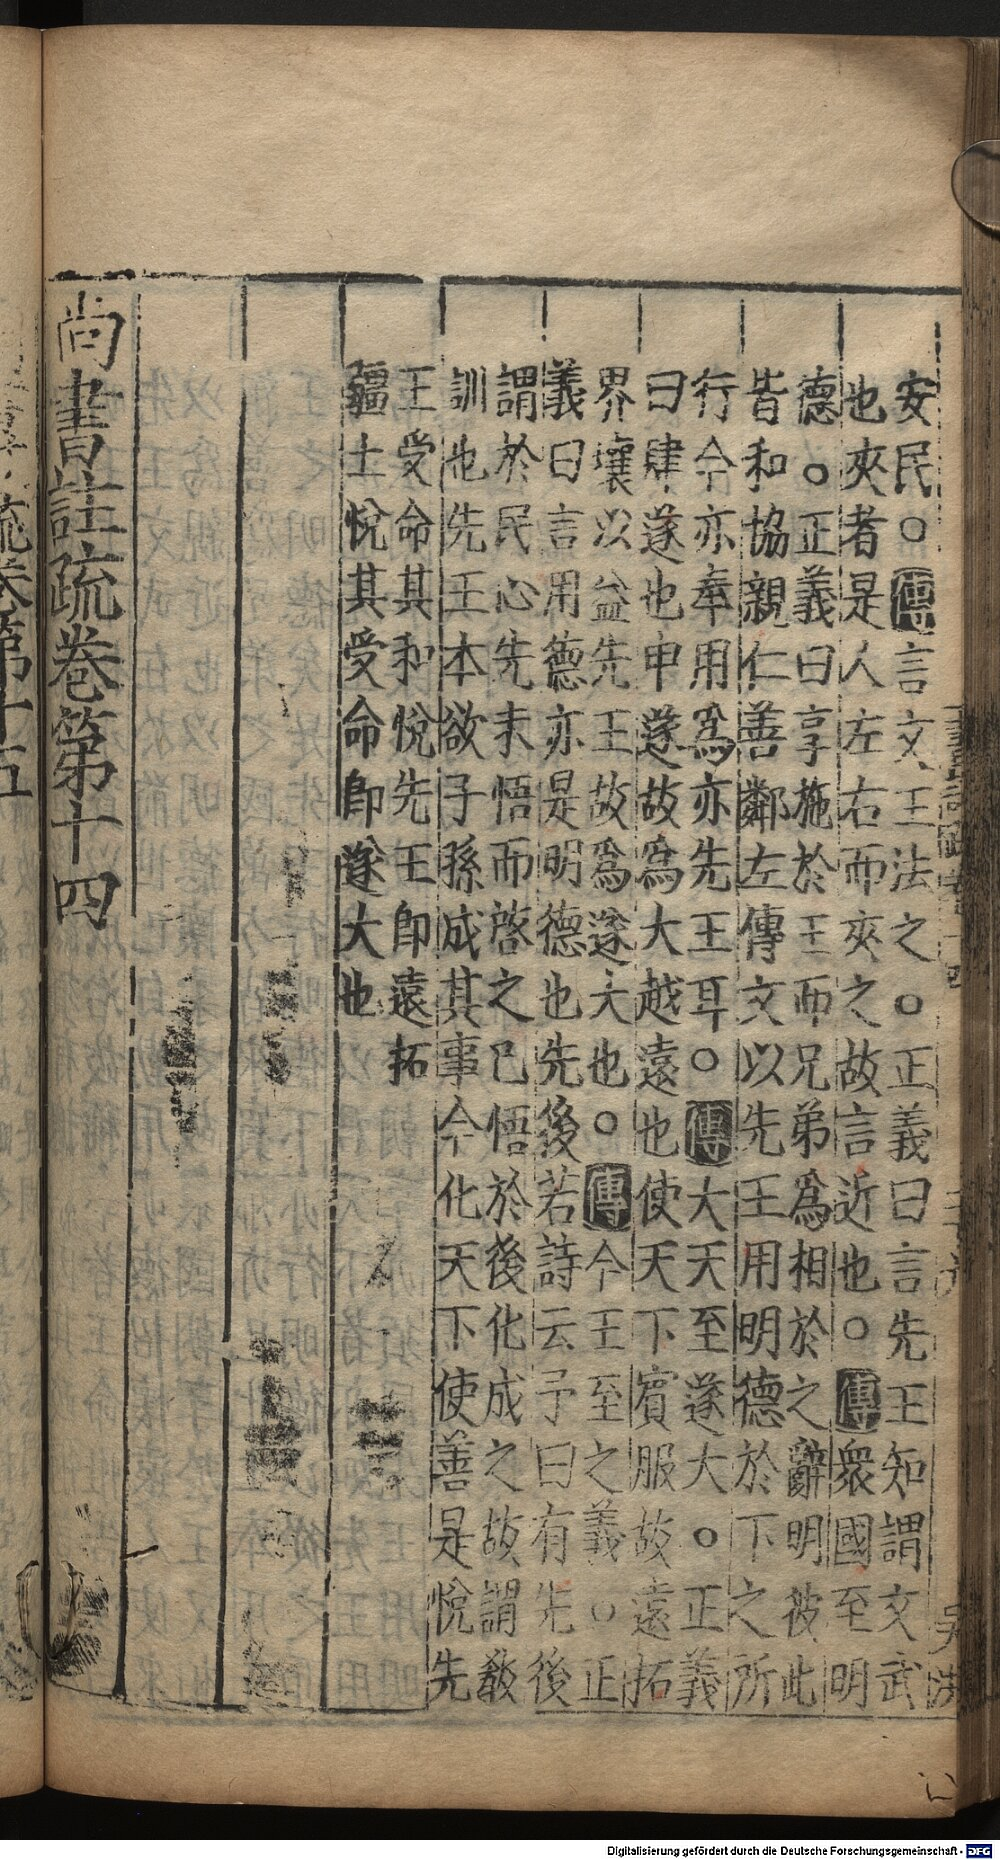 安民○傳言文王法之○正義曰言先王知謂文武
也夾者是人左右而夾之故言近也○傳衆國至明
德○正義曰享施於王而兄弟爲相於之辭明彼此
皆和協親仁善鄰左傳文以先王用明德於下之所
行今亦奉用爲亦先王耳○傳大天至遂大○正義
曰肆遂也申遂故爲大越遠也使天下賓服故遠拓
界壤以益先王故爲遂大也○傳今王至之義○正
義曰言用德亦是明德也先後若詩云予曰有先後
謂於民心先未悟而啓之已悟於後化成之故謂教
訓也先王本欲子孫成其事今化天下使善是悅先
王受命其和悅先王即遠拓
疆土悅其受命即遂大也
尚書註疏卷第十四
Digitalisierung gefördert durch die Deutsche Forschungsgemeinschaft - DFG